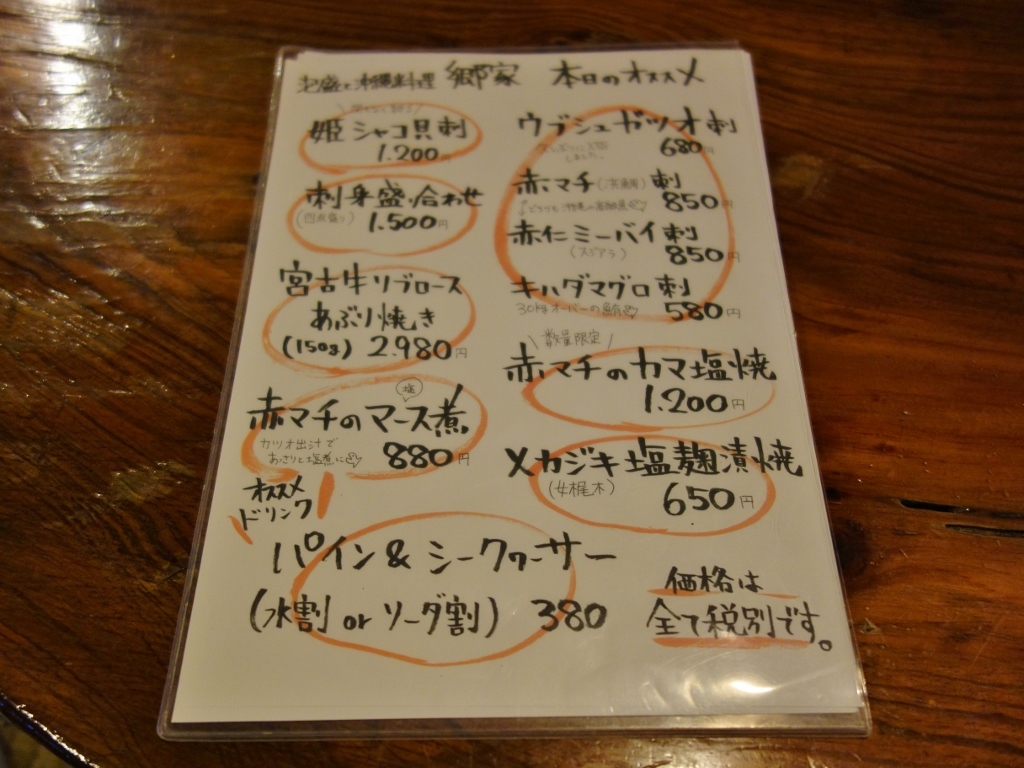 泡盛と沖縄料理 郷家 本日のオススメ
姫シャコ貝刺
1.200円
刺身盛り合わせ
(四点盛り) 1.500円
宮古牛リブロース
あぶり焼き
(150g) 2.980円
塩
赤マチのマース煮
カツオ出汁で
あっさりと塩煮に
880円
ウブシュガツオ刺
680円
しました。
赤マチ 刺
850円
赤仁ミーバイ刺
(スジアラ) 850円
キハダマグロ刺
30kgオーバーの鮪 580円
\数量限定/
赤マチのカマ塩焼
1.200円
メカジキ塩麹漬焼
(女梶木) 650円
オススメ
ドリンク!
パイン&シークヮーサー
(水割 or ソーダ割) 380
価格は
全て税別です。